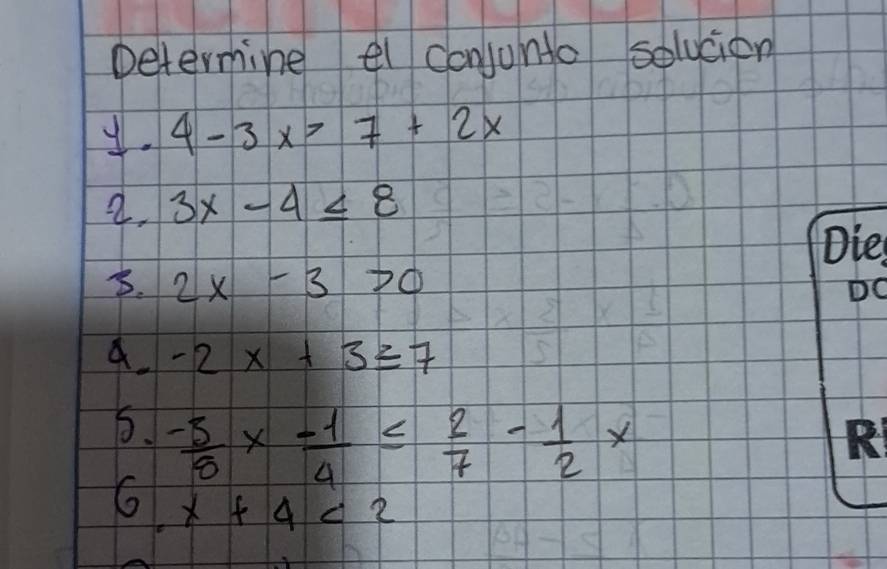 Determine el conjunto solución
1. 4 - 3x > 7 + 2x
2. 3x - 4 ≤ 8
Die
3. 2x - 3 > 0
DO
4. -2x + 3 ≥ 7
5. -5/8 x -1/4 ≤ 2/7 - 1/2 x
R
6. x + 4 < 2